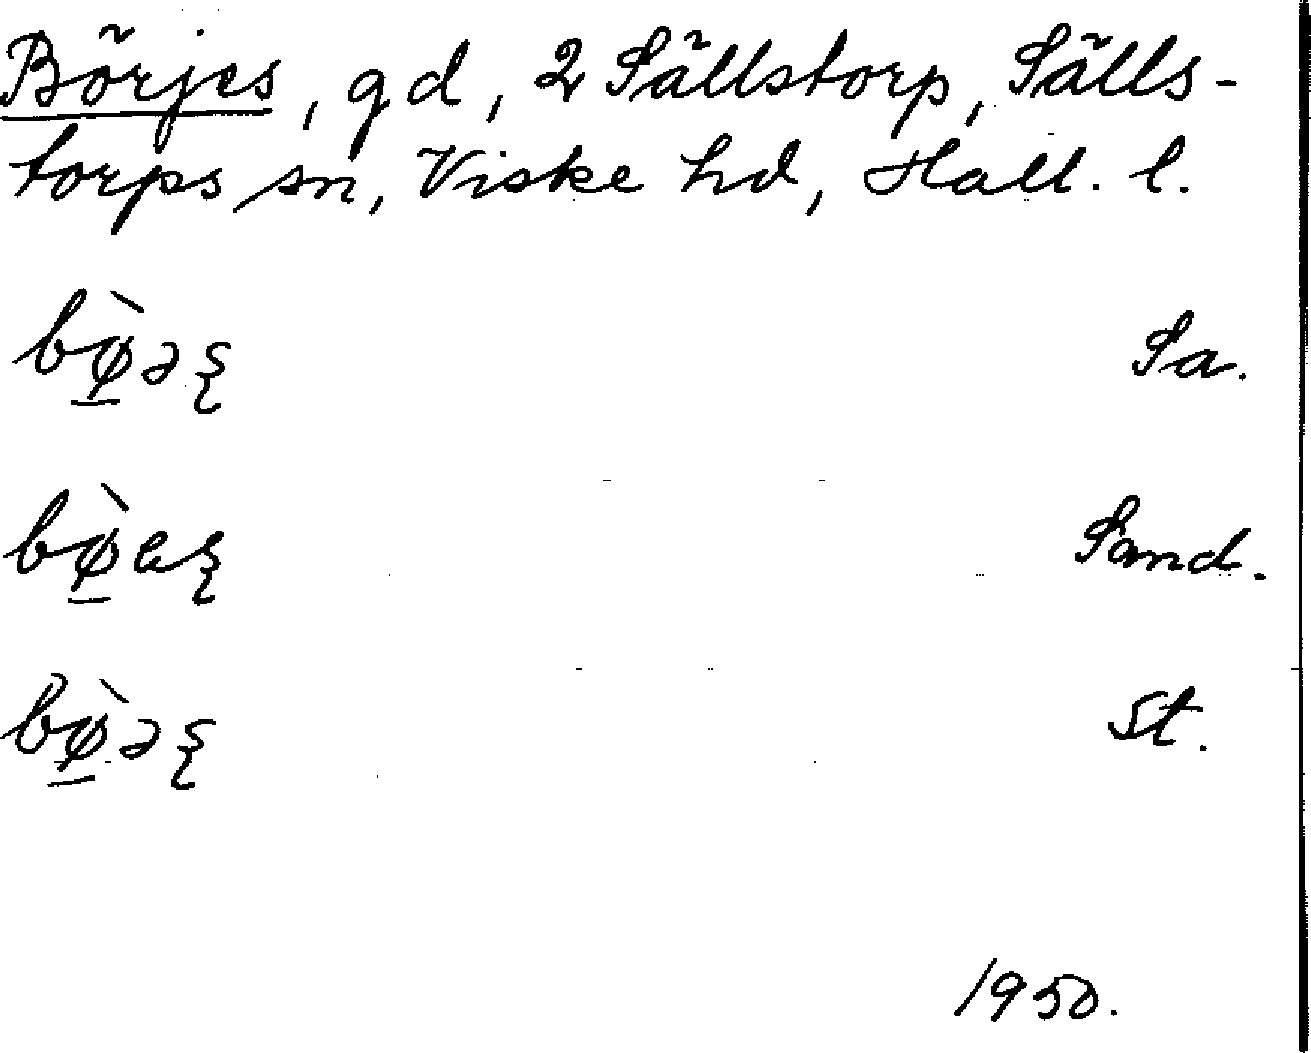 Börjes, gd, 2 Sällstorp, Sälls-
torps sn, Viske hd, Hall. l.
bø̱̀əş Sa.
bø̱̀eş Sand.
bø̱̀əş St.
1950.